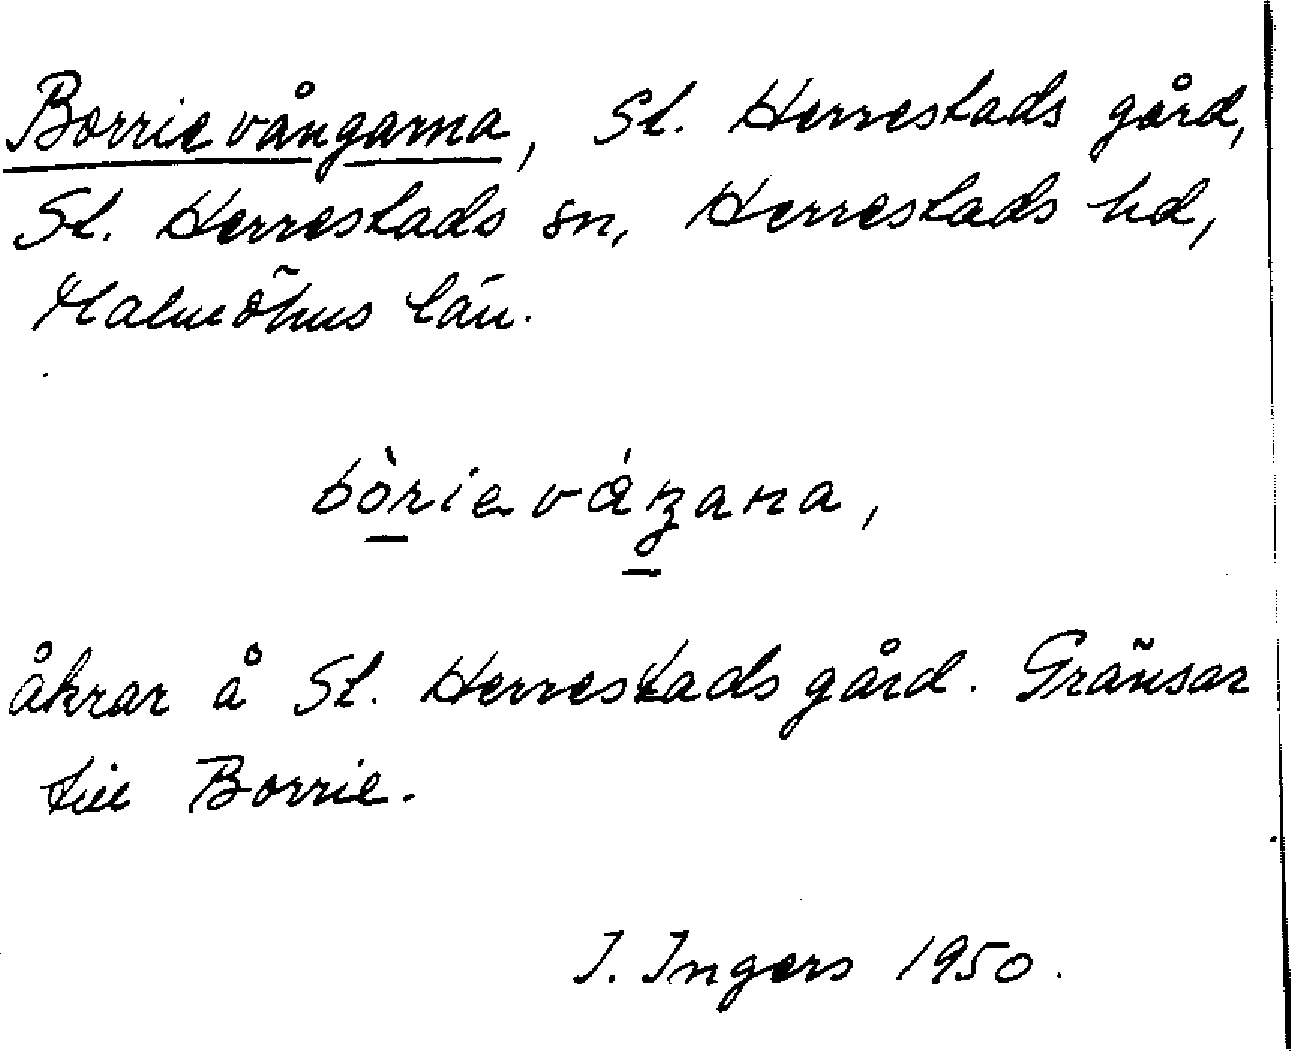 Borrievångarna, St. Herrestads gård,
St. Herrestads sn, Herrestads hd,
Malmöhus län.
bòrieváŋana,
åkrar å St. Herrestads gård. Gränsar
till Borrie.
I. Ingers 1950.